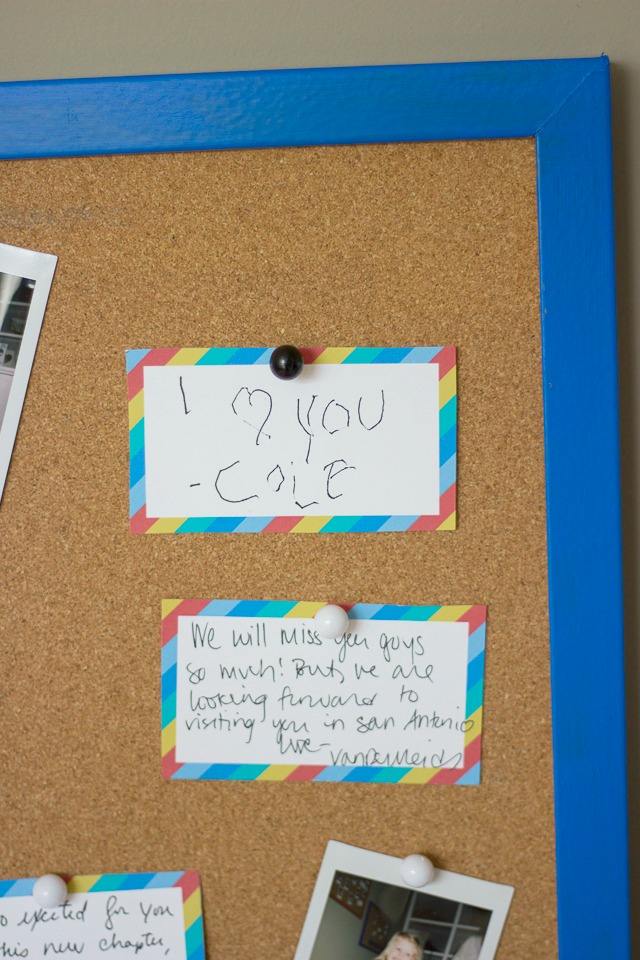 I ♡ YOU
- COLE
We will miss you guys
so much! But, we are
looking forward to
visiting you in san Antonio
love -
VanDerMeids
so excited for you
this new chapter,